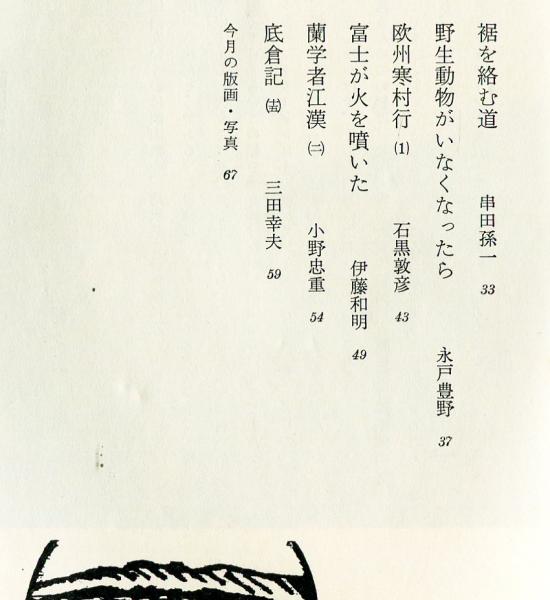 裾を絡む道 串田孫一 33
野生動物がいなくなったら 永戸豊野 37
欧州寒村行 (1) 石黒敦彦 43
富士が火を噴いた 伊藤和明 49
蘭学者江漢 (二) 小野忠重 54
底倉記 三田幸夫 59
今月の版画・写真 67